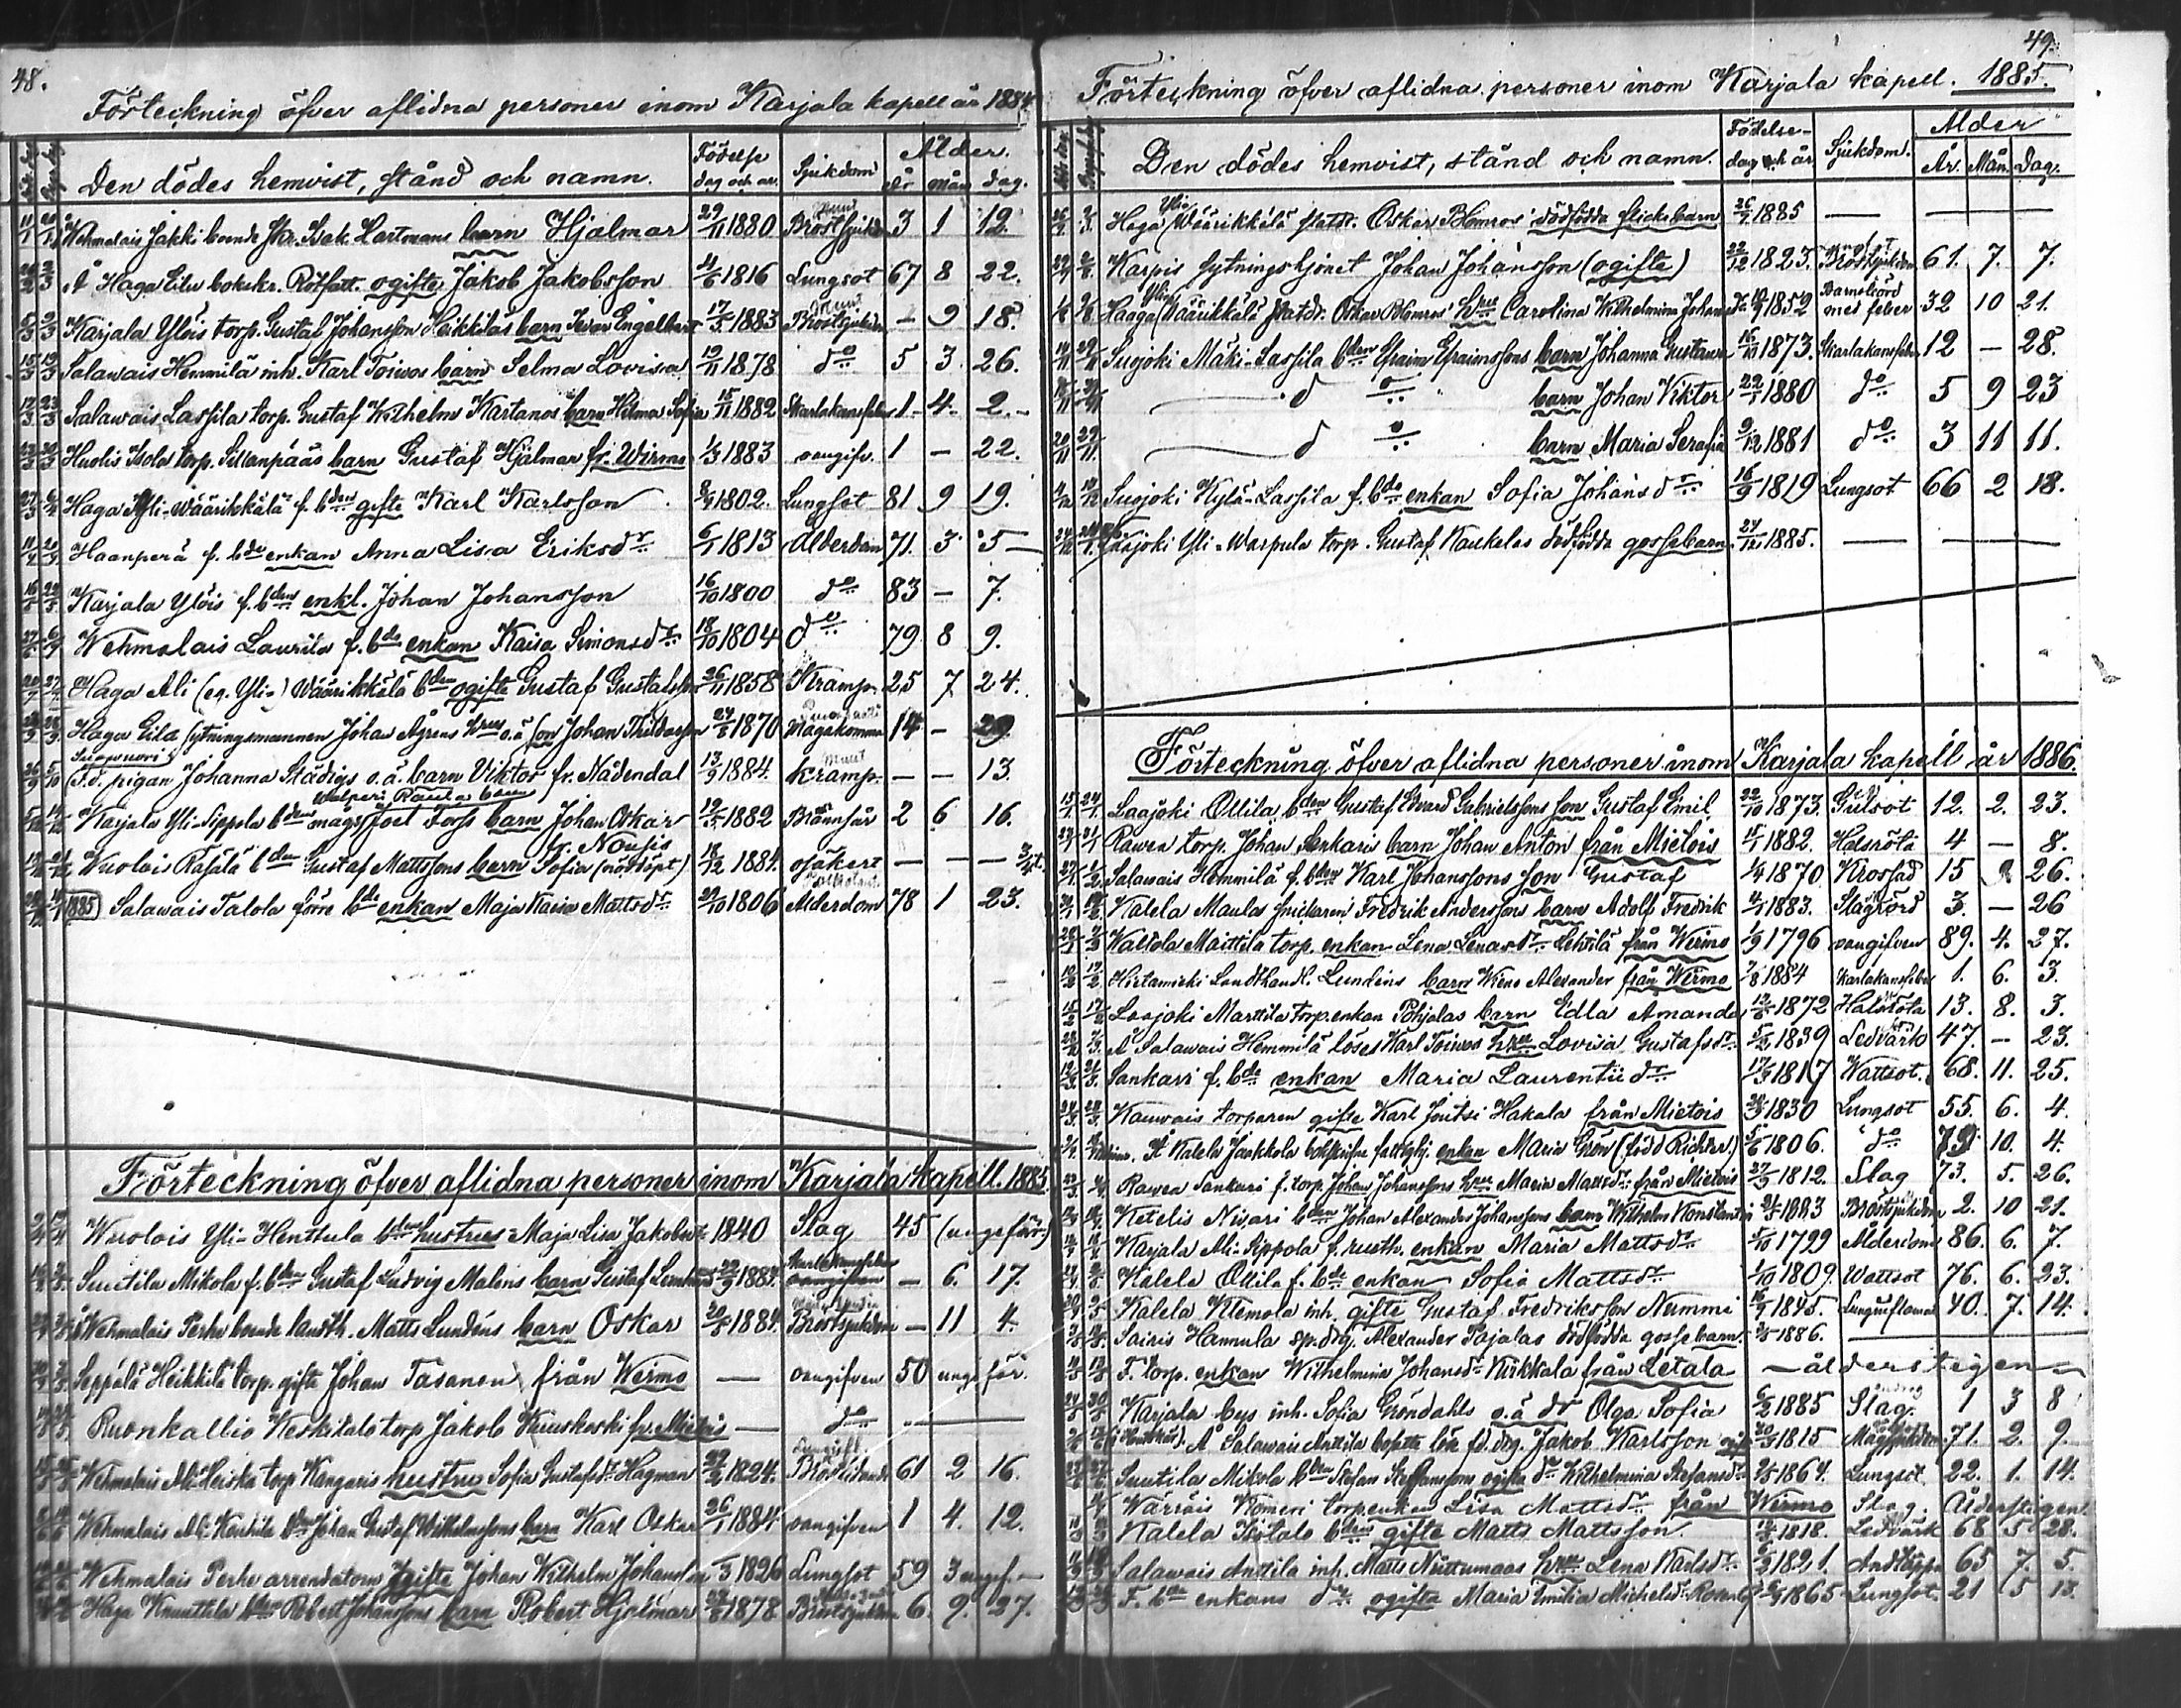 48.
Förteckning öfver aflidna personer inom Karjala kapell år 1884
Den dödes hemvist, stånd och namn. Födelse dag och år. Sjukdom Ålder. år mån dag.
11/1 20/1 Wehmalais Jakki boende Skr. Isak Hartmans barn Hjalmar 29/11 1880 Bröstsjukdom 3 1 12.
26/2 2/3 Å Haga Eilu bokskr. Rotfatt. ogifte Jakob Jakobsson 4/6 1816 Lungsot 67 8 22.
5/3 9/3 Karjala Ylöis torp. Gustaf Johansson Heikkiläs barn Ivar Engelbert 17/5 1883 Bröstsjukdom - 9 18.
15/3 19/3 Salawais Hemmilä inh. Karl Toiwos barn Selma Lovisa 19/11 1878 do 5 3 26.
17/3 23/3 Salawais Lassila torp. Gustaf Wilhelm Kartanos barn Hilma Sofia 15/11 1882 Skarlakansfeber 1 4 2
23/3 30/3 Huolis Isola torp. Sillanpääs barn Gustaf Hjalmar fr. Wirmo 1/3 1883 oangifv. 1 - 22.
27/3 6/4 Haga Yli-Wäärikkälä f. bden gifte Karl Karlsson 8/7 1802. Lungsot 81 9 19.
11/4 20/4 Haanperä f. bde enkan Anna Lisa Eriksdr 6/1 1813 Ålderdom 71. 3 5
16/5 24/5 Karjala Ylöis f. bdens enkl. Johan Johansson 16/10 1800 do 83 - 7.
27/6 6/7 Wehmalais Laurila f. bde enkan Kaisa Simonsdr 18/10 1804 do 79 8 9.
20/7 27/7 Haga Ali (eg. Yli-) Wäärikkälä bden ogifte Gustaf Gustafsson 26/11 1858 Kramp. 25 7 24.
Haga Eila sytningsmannen Johan Ågrens hrus o.ä son Johan Thildorsson 24/8 1870 Magakomma 14 - 29.
26/9 5/10 F.d. pigan Johanna Städigs o.ä. barn Viktor fr. Nådendal 13/9 1884. Kramp. - - 13.
Karjala Yli-Sippola bdens mågs Joel Forss barn Johan Oskar 19/5 1882 Brännsår 2 6 16.
fr. Nousis
Wuolais Rasälä bden Gustaf Mattssons barn Sofia (nöddöpt) 18/12 1884. osäkert - - -
1885 Salawais Talola förre bde enkan Maja Kaisa Mattsdr 1806 Ålderdom 78 1 23.
Förteckning öfver aflidna personer inom Karjala kapell. 1885.
Wuolois Yli-Henttula bden hustru Maja Lisa Jakobsdr 1840 Slag 45 (ungefär)
Suutila Mikola f. bden Gustaf Ludvig Malens barn Gustaf 1884. oangifven - 6. 17.
Wehmalais Perhe boende landth. Matts Lundéns barn Oskar 1884. Bröstsjukdom - 11 4.
Seppälä Heikkilä torp. gifte Johan Tasanen från Wirmo - oangifven 50 ungefär.
Ruonkallio Keskitalo torp Jakob Kuuskoski fr. Mietois - do -
Wehmalais Ali-Heiska torp Kangaris hustru Sofia Gustafsdr Hagman 1824. 61 2 16.
Wehmalais Ali-Kerhilä bden Johan Gustaf Wilhelmssons barn Karl Oskar 26/1 1884. oangifven 1 4. 12.
Wehmalais Perhe arrendatorn gifte Johan Wilhelm Johansson 1826 Lungsot 59 3 ungef.
Haga Knuuttila bden Robert Johanssons barn Robert Hjalmar 1878. Bröstsjukdom 6. 9. 27.
49.
Förteckning öfver aflidna personer inom Karjala kapell. 1885.
Den dödes hemvist, stånd och namn. Födelse- dag och år Sjukdom. Ålder År. Mån. Dag.
Haga (Yli-)Wäärikkälä statdr. Oskar Blomros' dödfödda flickebarn 26/7 1885
Karpis sytningshjonet Johan Johansson (ogifte) 22/12 1823. Bröstsjukdom 61. 7. 7.
Haaga (Yli) Wäärikkälä statdr. Oskar Blomros' hru Carolina Wilhelmina Johansdr 1852 Barnsbörd med feber 32 10 21.
Suojoki Mäki-Lassila bden Efraim Efraimssons barn Johanna Gustava 16/10 1873. Skarlakansfeber 12 - 28.
do barn Johan Viktor 22/1 1880 do 5 9 23
20/11 29/11 do barn Maria Serafia 9/12 1881 do 3 11 11.
Suojoki Kylä-Lassila f. bde enkan Sofia Johansdr 16/9 1819 Lungsot 66 2 18.
Laajoki Yli-Warpula torp. Gustaf Kaukolas dödfödda gossebarn. 24/12 1885.
Förteckning öfver aflidna personer inom Karjala kapell år 1886.
15/1 24/1 Laajoki Ollila bden Gustaf Edvard Gabrielssons son Gustaf Emil 22/10 1873. Gulsot 12. 2. 23.
Rawea torp. Johan Sankaris barn Johan Anton från Mietois 15/1 1882. Halsröta 4 - 8.
Salawais Hemmilä f. bden Karl Johanssons son Gustaf 1/4 1870 Krossad 15 9 26.
Kalela Maulas snickaren Fredrik Anderssons barn Adolf Fredrik 4/1 1883. Slagrörd 3. - 26
Waltola Maittila torp. enkan Lena Lenasdr Lehtilä från Wirmo 1/9 1796 oangifven 89. 4. 27.
Hietamäki Landthandl. Lundéns barn Wieno Alexander från Wirmo 7/8 1884 Skarlakansfeber 1. 6. 3.
Laajoki Marttila torp.enkan Pohjolas barn Edla Amanda 12/6 1872 Halsröta 13. 8. 3.
Å Salawais Hemmilä löses Karl Toiwos hru Lovisa Gustafsdr 1839 Ledvärk 47. - 23.
Sankari f. bde enkan Maria Laurentii dr 17/3 1817 Wattsot. 68. 11. 25.
Kauwais torparen gifte Karl Joutsi Hakala från Mietois 1830 Lungsot 55. 6. 4.
Å Kalela Jaakkola bokskrifne fattighj. enkan Maria Grön (född Richter) 5/6 1806. do 79 10. 4.
Rawea Sankari f. torp. Johan Johanssons hru Maria Mattsdr från Mietois 1812. Slag 73. 5. 26.
Ketelis Nisari bden Johan Alexander Johanssons barn Wilhelm Konstantin 1883 Bröstsjukdom 2. 10 21.
Karjala Ali-Sippola f. rusth. enkan Maria Mattsdr 1799 Ålderdom 86. 6. 7.
Kalela Ollila f. bde enkan Sofia Mattsdr 1/10 1809. Wattsot 76. 6. 23.
Kalela Klemola inh. gifte Gustaf Fredriksson Nummi 1845. Lunginflamat 40. 7. 14.
Sairis Hannula sp.drg. Alexander Pajalas dödfödda gossebarn. 1886.
F. torp. enkan Wilhelmina Johansdr Kirkkala från Letala ålderstigen
Karjala bys inh. Sofia Gröndahls o.ä dr Olga Sofia 6/2 1885 Slag. 1 3 8
Å Salawais Anttila bosatte löse fd. drg. Jakob Karlsson 1815 Magsjukdom. 71. 2. 9.
Suutila Mikola bden Stefan Steffanssons ogifta dr Wilhelmina Stefansdr 1864. Lungsot. 22. 1. 14.
Wärräis Komeri torpenkan Lisa Mattsdr från Wirmo Slag. Ålderstigen
Kalela Isotalo bden gifte Matts Mattsson. 1818. Ledvärk 68 5 28.
Salawais Anttila inh. Matts Niittumaas hru Lena Karlsdr 1821. Andtäppa 65 7. 5.
F. bde enkans dr ogifta Maria Emilia Michelsdr 1865 Lungsot. 21 5 13.